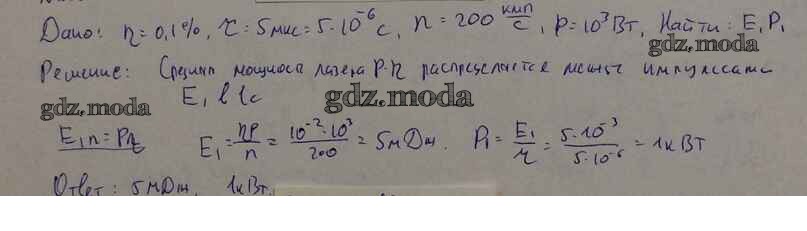 Дано: η = 0,1%, τ = 5мкс = 5·10⁻⁶ с, n = 200 кмп/с, P = 10³ Вт, Найти: E₁ P₁
gdz.moda
Решение: Средняя мощность лазера P·η распределяется между импульсами
gdz.moda gdz.moda
E₁ в 1с
E₁n = Pη E₁ = ηP/n = 10⁻²·10³/200 = 5мДж. P₁ = E₁/τ = 5·10⁻³/5·10⁻⁶ = 1кВт
Ответ: 5мДж, 1кВт.